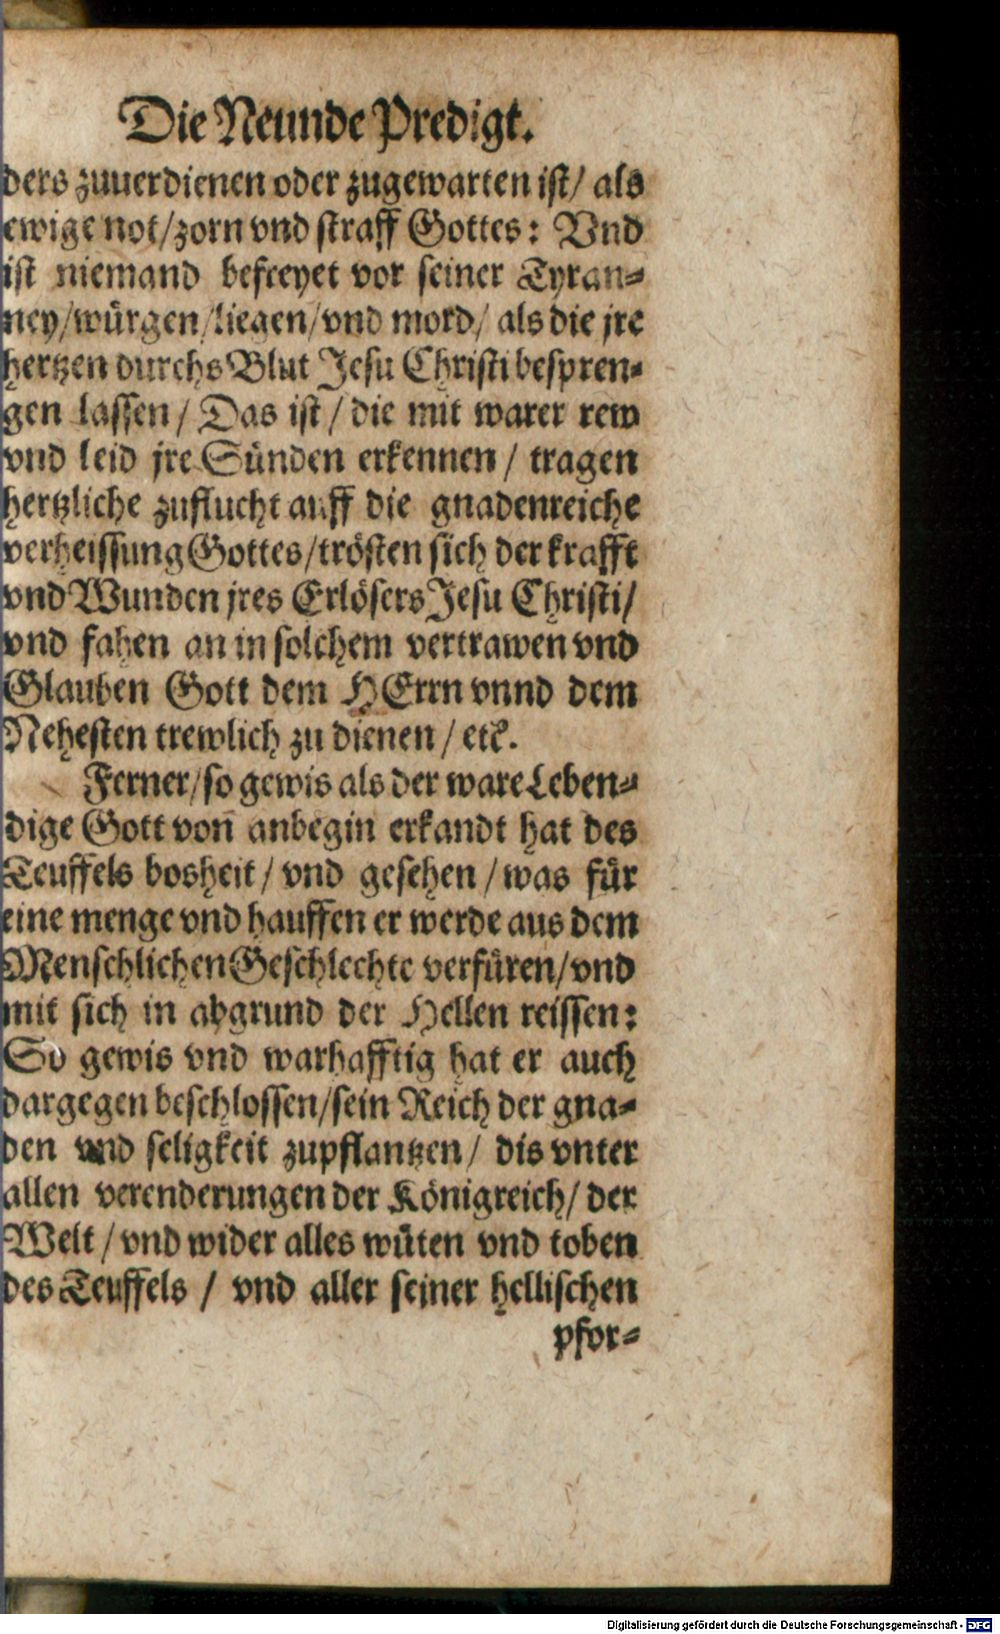 Die Neunde Predigt.
ders zuuerdienen oder zugewarten ist/ als
ewige not/zorn vnd straff Gottes: Vnd
ist niemand befreyet vor seiner Tyran-
ney/würgen/liegen/vnd mord/ als die jre
hertzen durchs Blut Jesu Christi bespren-
gen lassen/ Das ist/ die mit warer rew
vnd leid jre Sünden erkennen/ tragen
hertzliche zuflucht auff die gnadenreiche
verheissung Gottes/trösten sich der krafft
vnd Wunden jres Erlösers Jesu Christi/
vnd fahen an in solchem vertrawen vnd
Glauben Gott dem HErrn vnnd dem
Nehesten trewlich zu dienen/ etc.
Ferner/so gewis als der ware Leben-
dige Gott von anbegin erkandt hat des
Teuffels bosheit/ vnd gesehen/was für
eine menge vnd hauffen er werde aus dem
Menschlichen Geschlechte verfüren/vnd
mit sich in abgrund der Hellen reissen:
So gewis vnd warhafftig hat er auch
dargegen beschlossen/sein Reich der gna-
den vnd seligkeit zupflantzen/ dis vnter
allen verenderungen der Königreich/ der
Welt/ vnd wider alles wüten vnd toben
des Teuffels/ vnd aller seiner hellischen
pfor-
Digitalisierung gefördert durch die Deutsche Forschungsgemeinschaft - DFG